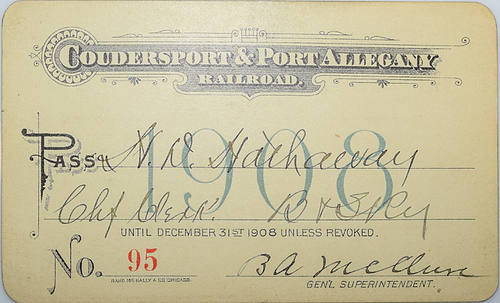 COUDERSPORT & PORT ALLEGANY
RAILROAD.
1908
PASS H. D. Hathaway
Chf Clerk.
UNTIL DECEMBER 31ST 1908 UNLESS REVOKED.
No. 95
B A McClure
RAND MCNALLY & CO CHICAGO.
GEN'L SUPERINTENDENT.